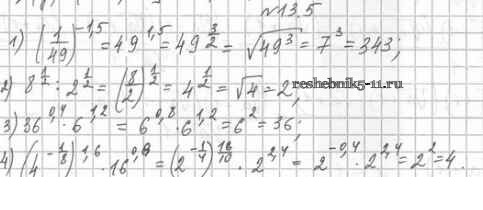 №13.5
1) (1/49)^{-1,5} = 49^{1,5} = 49^{3/2} = √49³ = 7³ = 343;
2) 8^{1/2} : 2^{1/2} = (8/2)^{1/2} = 4^{1/2} = √4 = 2;
reshebnik5-11.ru
3) 36^{0,4} · 6^{1,2} = 6^{0,8} · 6^{1,2} = 6² = 36;
4) (4^{-1/8})^{1,6} · 16^{0,6} = (2^{-1/4})^{16/10} · 2^{2,4} = 2^{-0,4} · 2^{2,4} = 2² = 4.